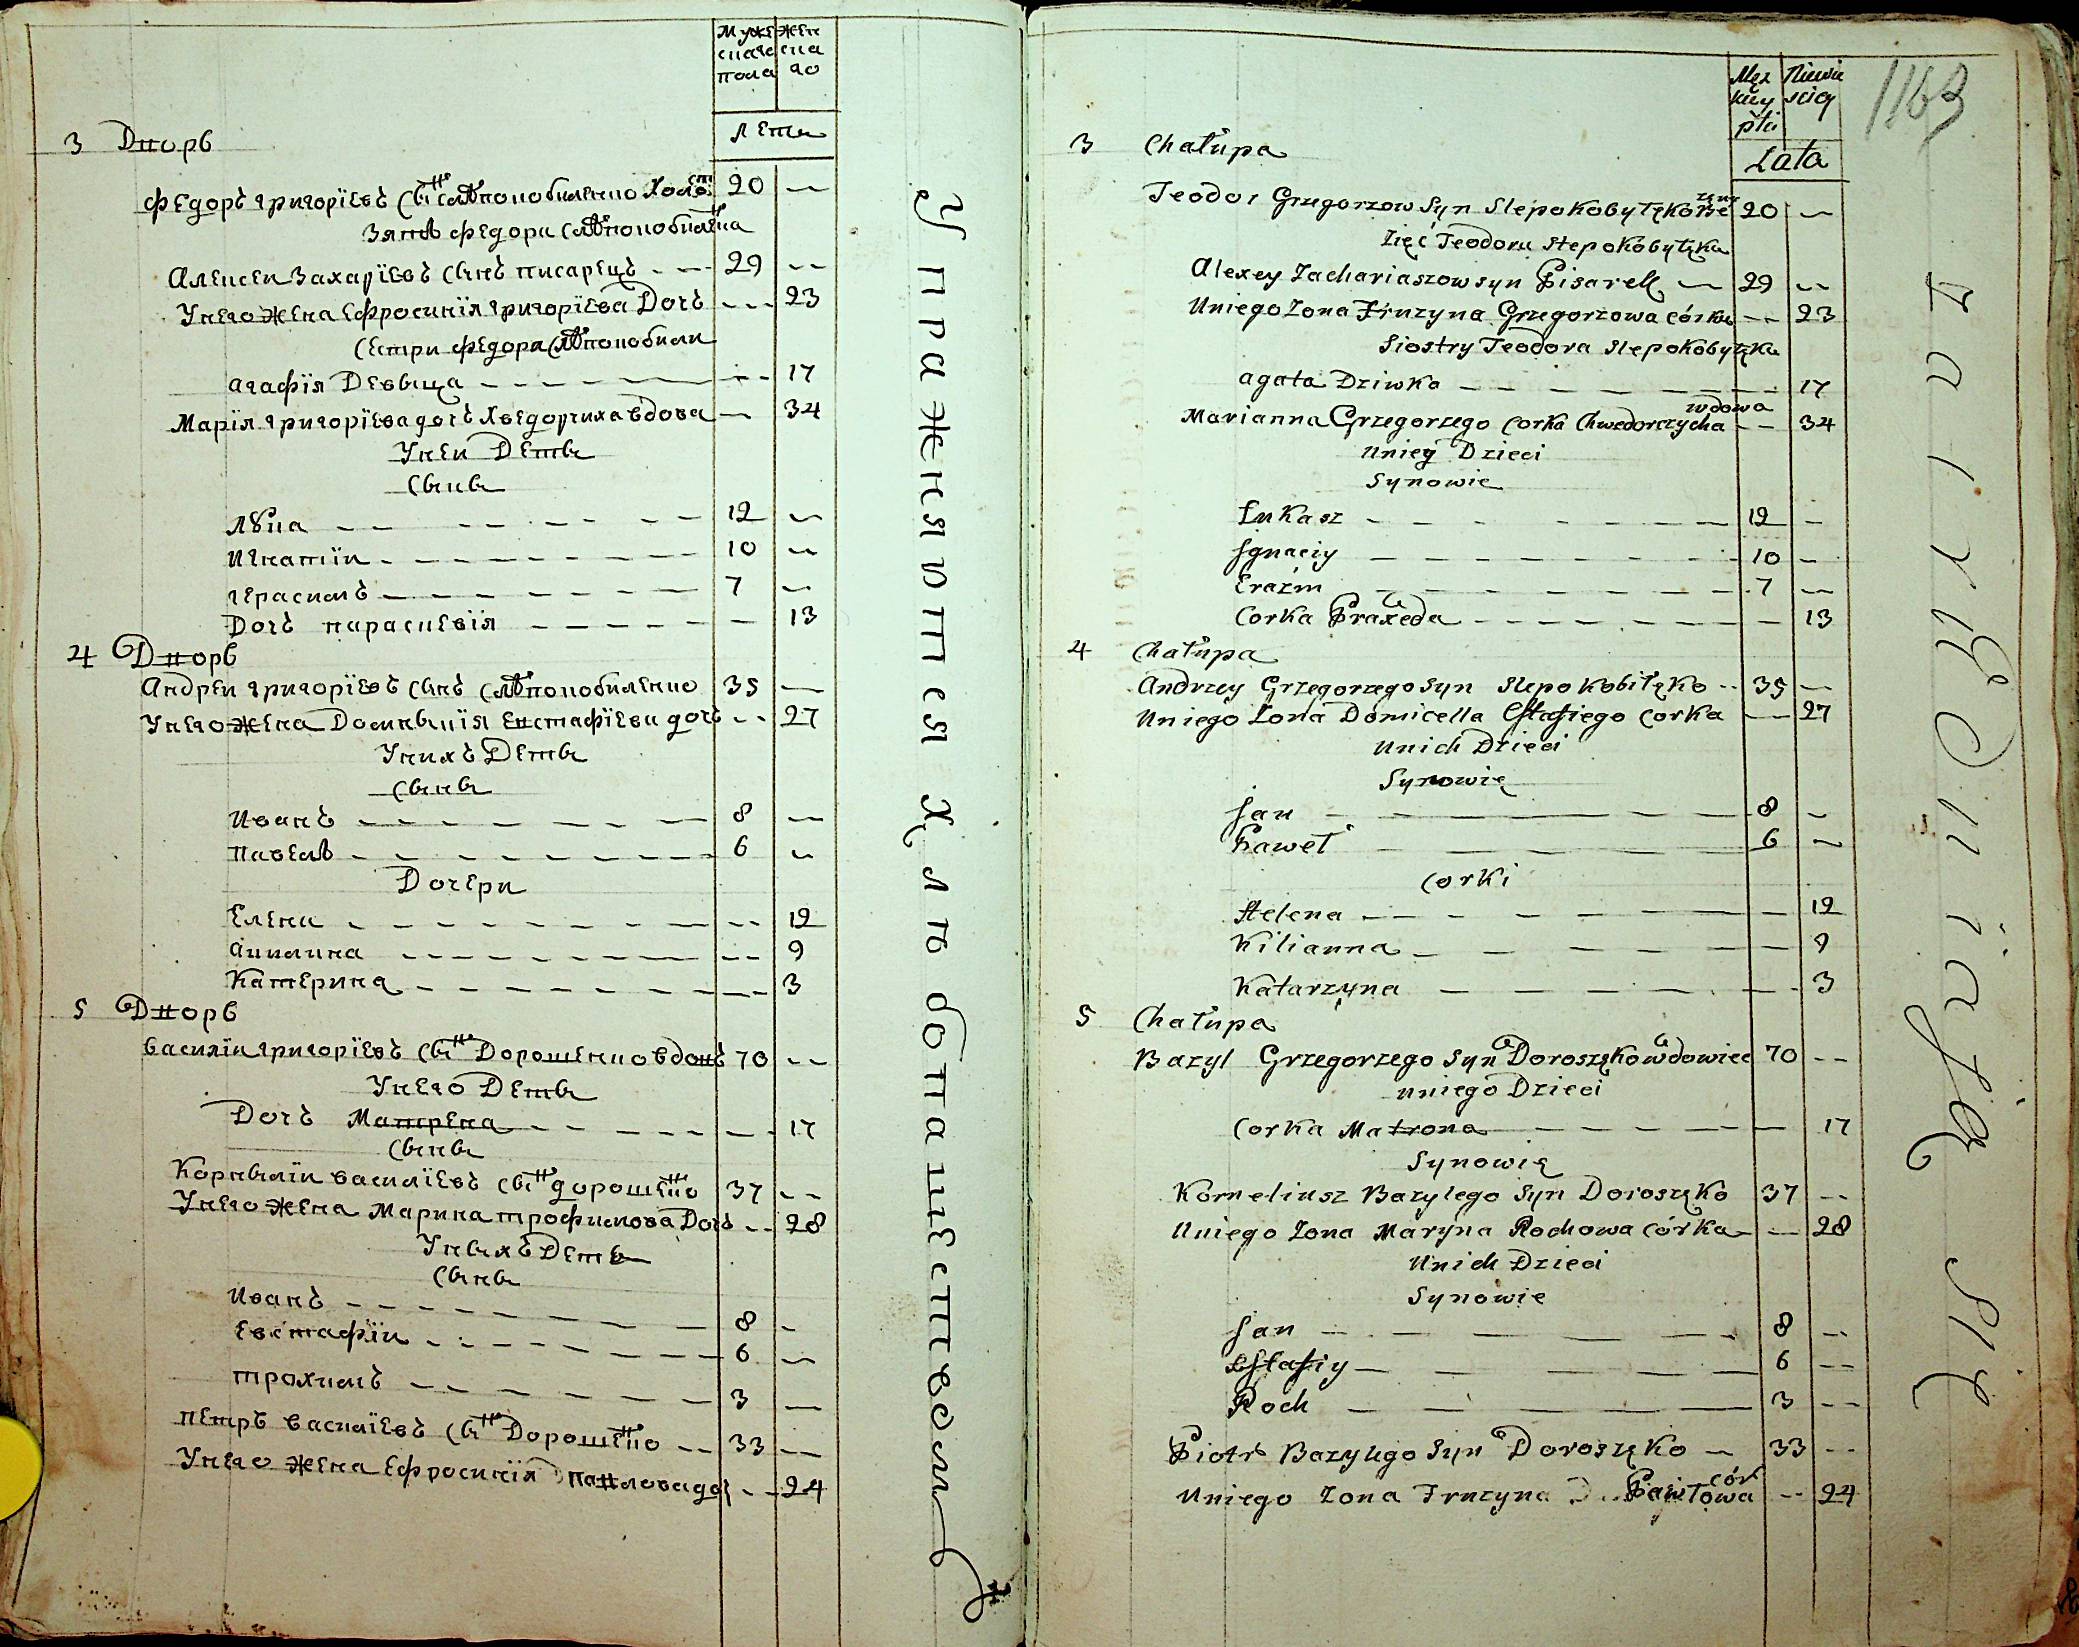 Мужескаго пола
Женскаго
лета
3 Дворъ
Федоръ Григорїевъ сынъ Слѣпокобиленко Холост 20 —
Зятъ Федора Слѣпокобиленка
Алексеи Захарїевъ сынъ писарецъ — 29 —
У него жена Ефросинїя Григорїева Дочъ — 23
Сестри Федора Слѣпокобили
Агафїя Девица — 17
Марїя Григорїева дочъ Хведорчиха вдова — 34
У неи Дети
Сыны
Лука — 12 —
Игнатїи — 10 —
Герасимъ — 7 —
Дочъ Параскевїя — 13
4 Дворъ
Андреи Григорїевъ сынъ Слѣпокобиленко 35 —
У него жена Домникїя Евстафїева дочъ — 27
У нихъ Дети
Сыны
Иванъ — 8 —
Павелъ — 6 —
Дочери
Елена — 12
Акилина — 9
Катерина — 3
5 Дворъ
Василїи Григорїевъ сынъ Дорошенко вдовъ 70 —
У него Дети
Дочъ Матрена — 17
Сыны
Корнилїи Василїевъ сынъ Дорошенко 37 —
У него жена Марина Трофимова Дочъ — 28
У ныхъ Дети
Сыны
Иванъ — 8 —
Евстафїи — 6 —
Трохимъ — 3 —
Петръ Василїевъ сынъ Дорошенко — 33 —
У него жена Ефросинїя Павлова доч — 24
Упражняются Хлѣбопашеством
1163
Męzkiey płci
Niewiesciey
Lata
3 Chałupa
Teodor Grzegorzow Syn Slepokobyłęko 20 —
Zięć Teodora Slepokobyłęka
Alexey Zachariaszow syn Pisarek — 29 —
U niego Zona Fruzyna Grzegorzowa córka — 23
Siostry Teodora Slepokobyłęka
Agata Dziwka — 17
Marianna Grzegorzego Corka Chwedorczycha wdowa — 34
U niey Dzieci
Synowie
Łukasz — 12 —
Jgnaciy — 10 —
Erazm — 7 —
Corka Praxeda — 13
4 Chałupa
Andrzey Grzegorzego Syn Slepokobiłęko — 35 —
U niego Zona Domicella Estafiego Corka — 27
U nich Dzieci
Synowie
Jan — 8 —
Paweł — 6 —
Corki
Helena — 12
Kilianna — 9
Katarzyna — 3
5 Chałupa
Bazyl Grzegorzego Syn Doroszęko wdowiec 70 —
U niego Dzieci
Corka Matrona — 17
Synowie
Korneliusz Bazylego Syn Doroszęko 37 —
U niego Zona Maryna Rochowa Córka — 28
U nich Dzieci
Synowie
Jan — 8 —
Estafiy — 6 —
Roch — 3 —
Piotr Bazylego Syn Doroszęko — 33 —
U niego Zona Fruzyna Pawłowa cór — 24